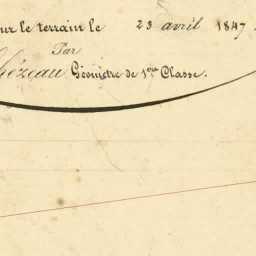 sur le terrain le 23 avril 1847.
Par
hézeau Géomètre de 1ère Classe.